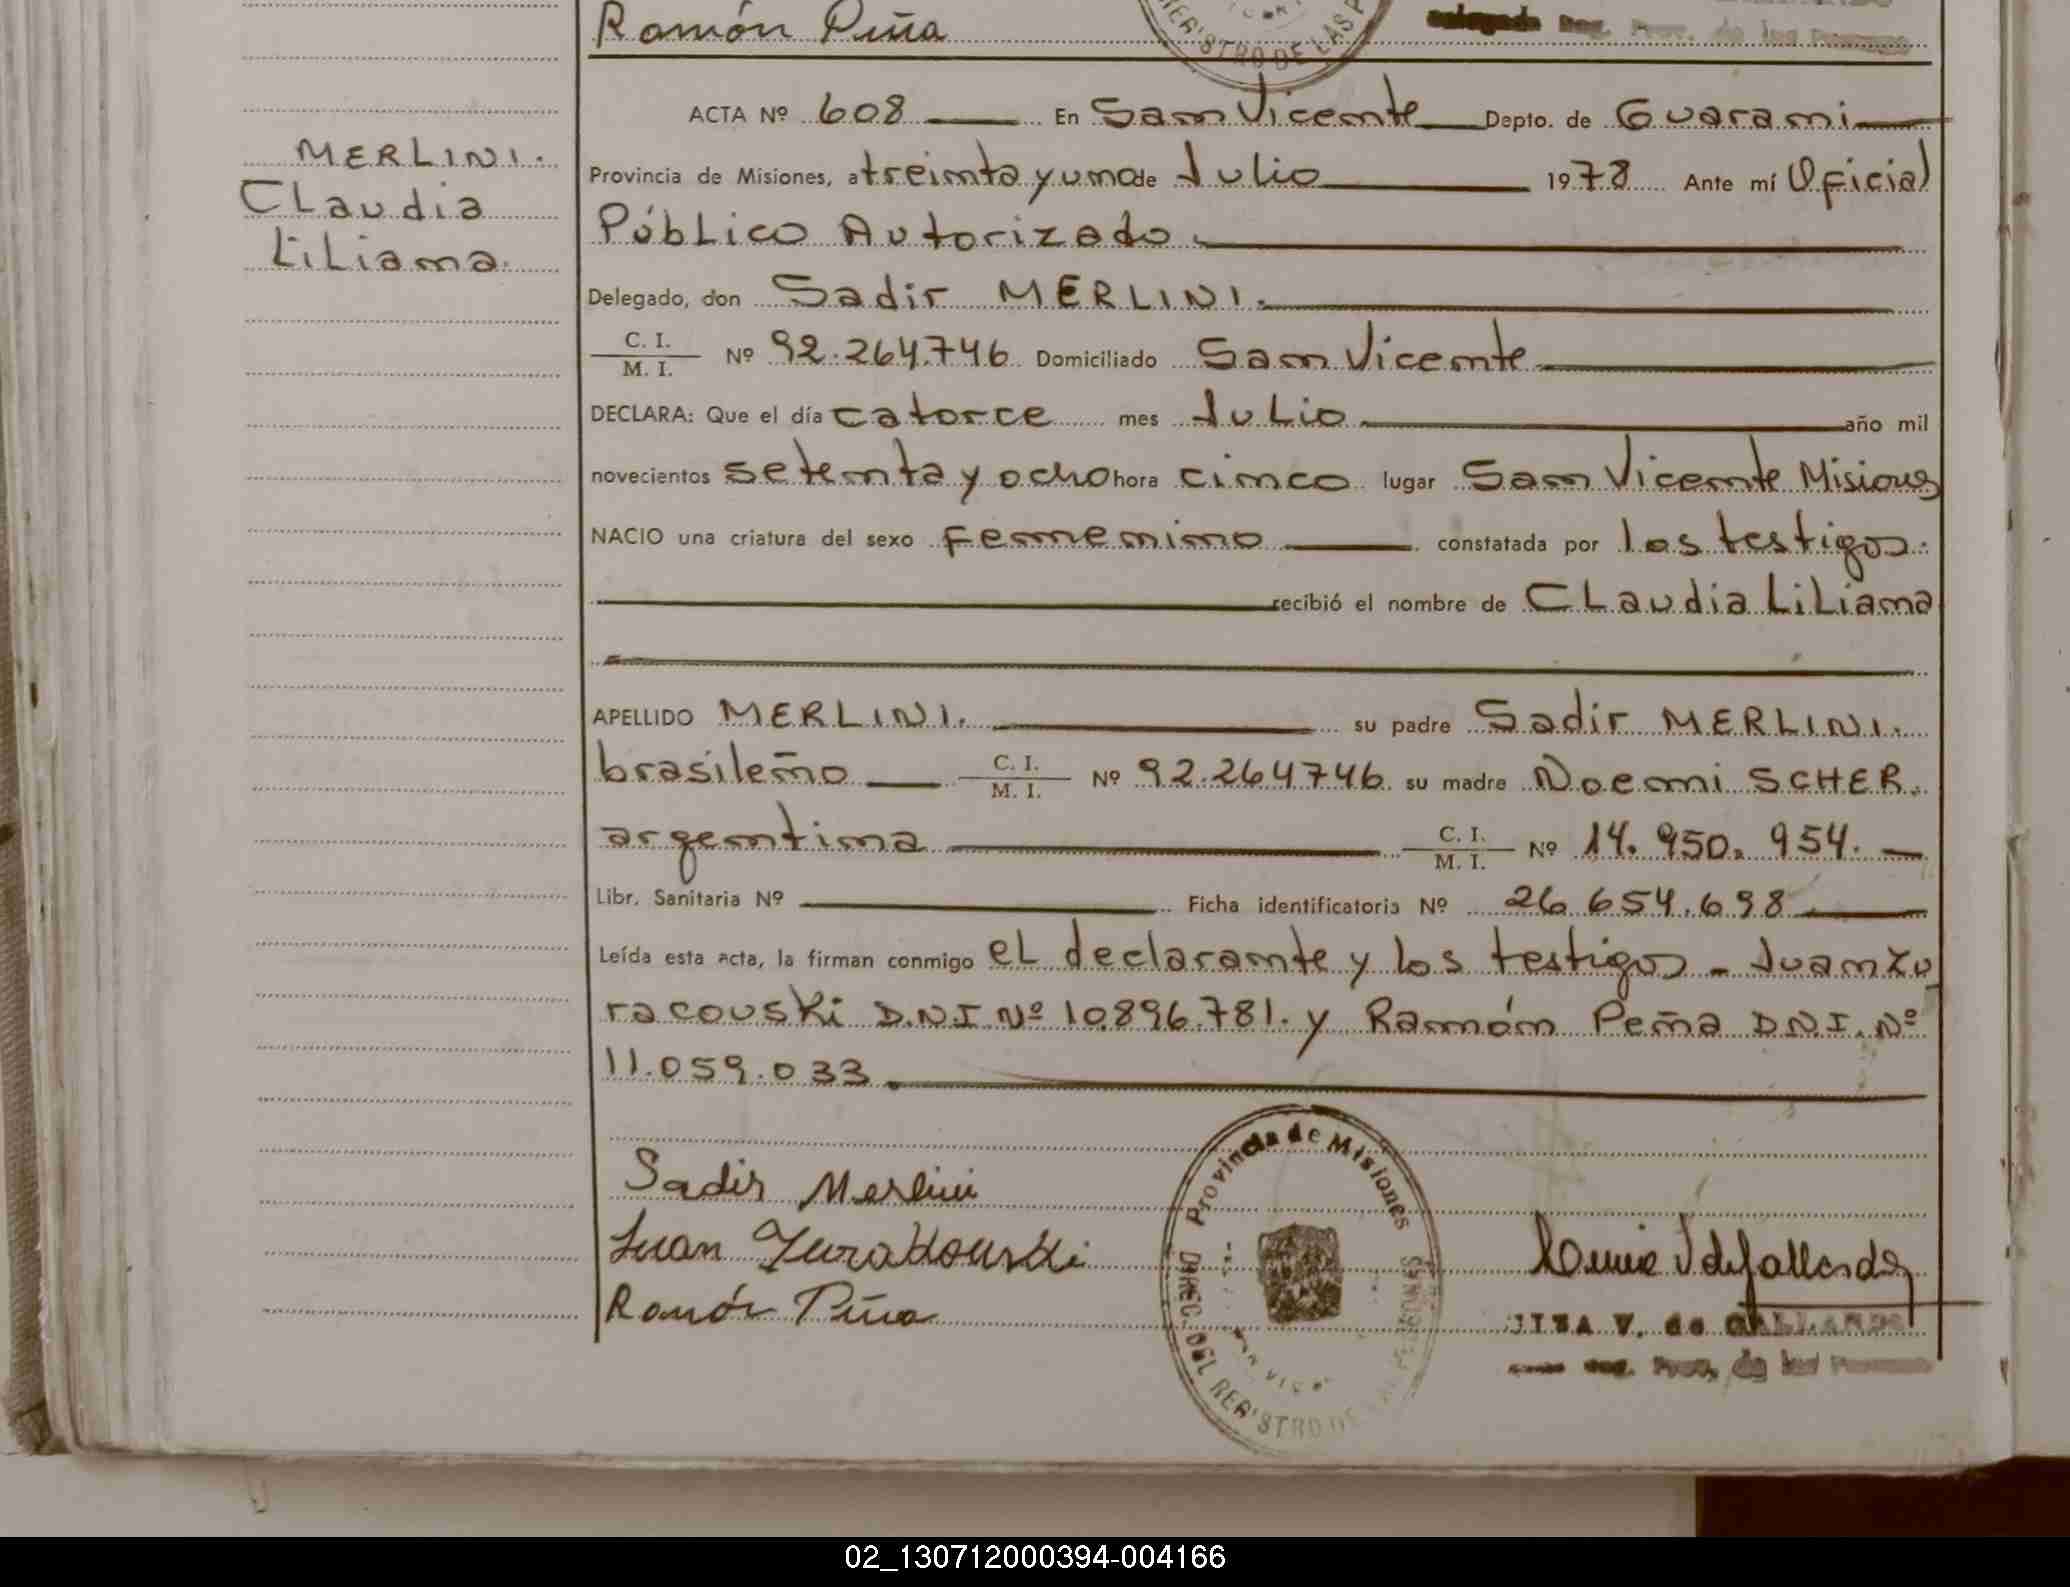 Ramón Piña
REG'STRO DE LAS P
delegada Reg. Prov. de las Personas
ACTA Nº 608 En San Vicente Depto. de Guarani
MERLINI.
Claudia
Liliana.
Provincia de Misiones, a treinta y uno de Julio 1978 Ante mí Oficial
Público Autorizado.
Delegado, don Sadir MERLINI.
C. I.
M. I. Nº 92.264.746 Domiciliado San Vicente
DECLARA: Que el día catorce mes Julio año mil
novecientos setenta y ocho hora cinco lugar San Vicente Misiones
NACIO una criatura del sexo femenino constatada por los testigos.
recibió el nombre de Claudia Liliana
APELLIDO MERLINI. su padre Sadir MERLINI.
brasileño C. I.
M. I. Nº 92.264746 su madre Noemi SCHER.
argentina C. I.
M. I. Nº 14.950.954.
Libr. Sanitaria Nº Ficha identificatoria Nº 26 654.698
Leída esta acta, la firman conmigo el declarante y los testigos - Juan Zu
racouski D.N.I. Nº 10.896.781. y Ramón Peña D.N.I. Nº
11.059.033.
Sadir Merlini
Juan Zurakouski
Ramón Piña
Provincia de Misiones
DIREC. DEL REG'STRO DE LAS PERSONAS
V. de GALLARDO
Reg. Prov. de las Personas
02_130712000394-004166